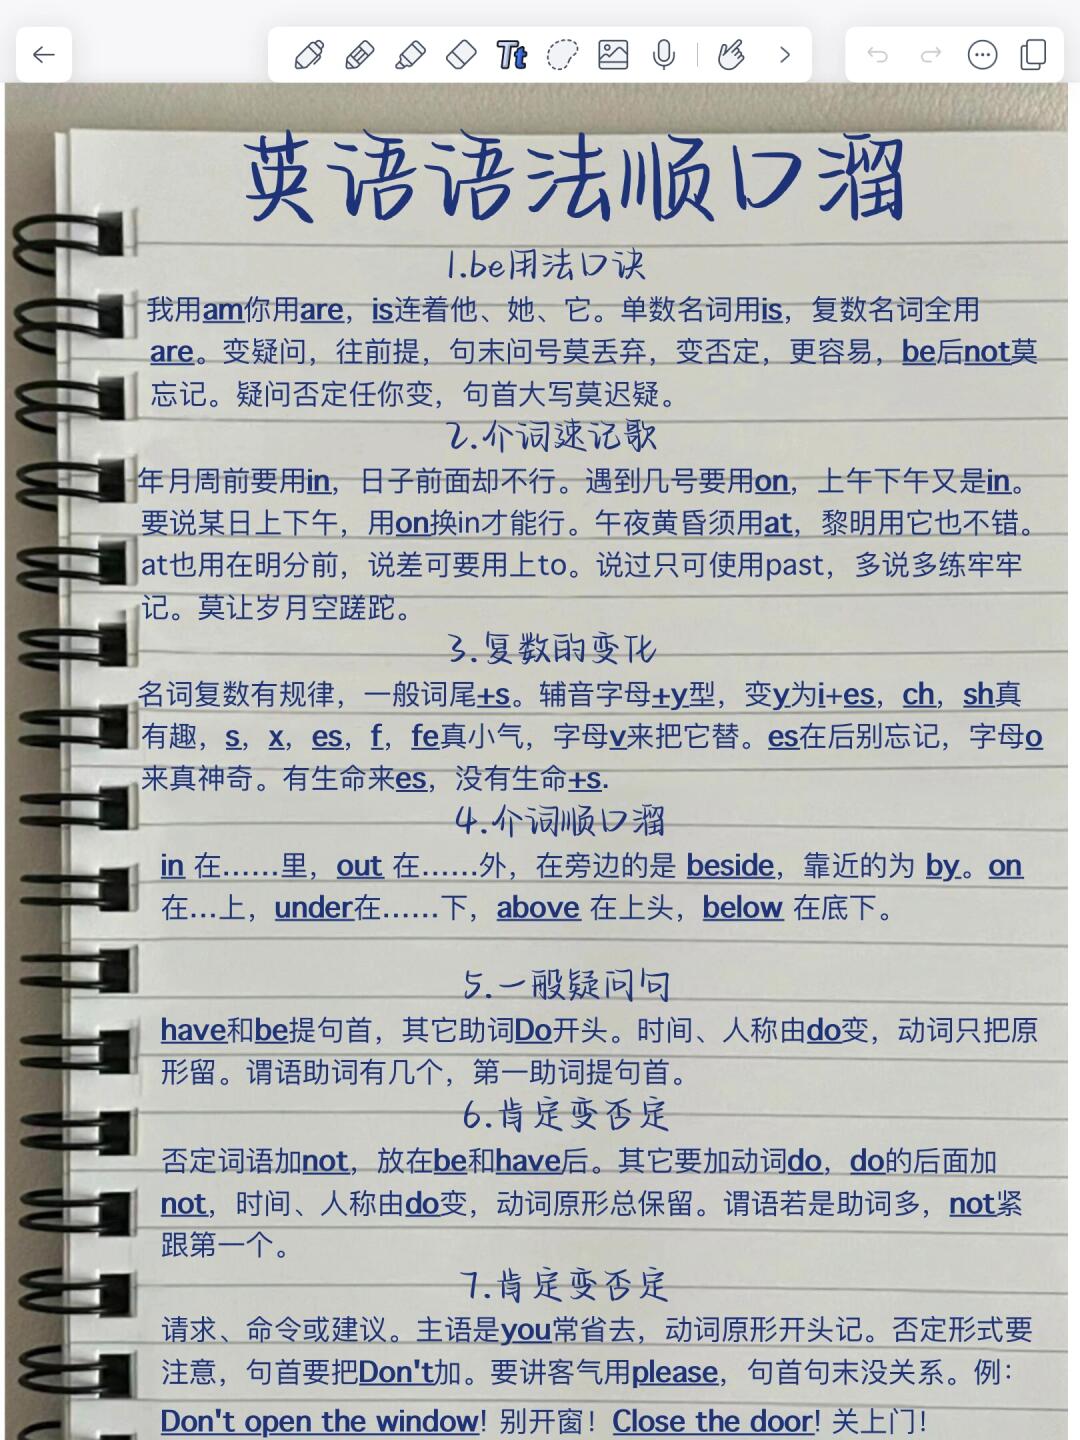 英语语法顺口溜
1.be用法口诀
我用am你用are，is连着他、她、它。单数名词用is，复数名词全用
are。变疑问，往前提，句末问号莫丢弃，变否定，更容易，be后not莫
忘记。疑问否定任你变，句首大写莫迟疑。
2.介词速记歌
年月周前要用in，日子前面却不行。遇到几号要用on，上午下午又是in。
要说某日上下午，用on换in才能行。午夜黄昏须用at，黎明用它也不错。
at也用在明分前，说差可要用上to。说过只可使用past，多说多练牢牢
记。莫让岁月空蹉跎。
3.复数的变化
名词复数有规律，一般词尾+s。辅音字母+y型，变y为i+es，ch，sh真
有趣，s，x，es，f，fe真小气，字母v来把它替。es在后别忘记，字母o
来真神奇。有生命来es，没有生命+s.
4.介词顺口溜
in 在……里，out 在……外，在旁边的是 beside，靠近的为 by。on
在…上，under在……下，above 在上头，below 在底下。
5.一般疑问句
have和be提句首，其它助词Do开头。时间、人称由do变，动词只把原
形留。谓语助词有几个，第一助词提句首。
6.肯定变否定
否定词语加not，放在be和have后。其它要加动词do，do的后面加
not，时间、人称由do变，动词原形总保留。谓语若是助词多，not紧
跟第一个。
7.肯定变否定
请求、命令或建议。主语是you常省去，动词原形开头记。否定形式要
注意，句首要把Don't加。要讲客气用please，句首句末没关系。例：
Don't open the window! 别开窗！Close the door! 关上门！